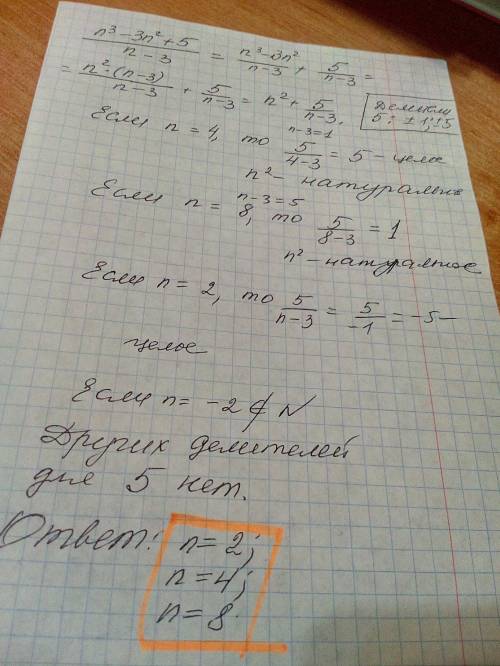 n³-3n²+5/n-3 = n³-3n²/n-3 + 5/n-3 =
= n²·(n-3)/n-3 + 5/n-3 = n² + 5/n-3.
Делители
5: ±1; ±5
n-3=1
Если n = 4, то 5/4-3 = 5 - целое
n² - натуральное
n-3=5
Если n = 8, то 5/8-3 = 1
n² - натуральное
Если n = 2, то 5/n-3 = 5/-1 = -5 -
целое
Если n = -2 ∉ N
Других делителей
для 5 нет.
Ответ: n=2;
n=4;
n=8.